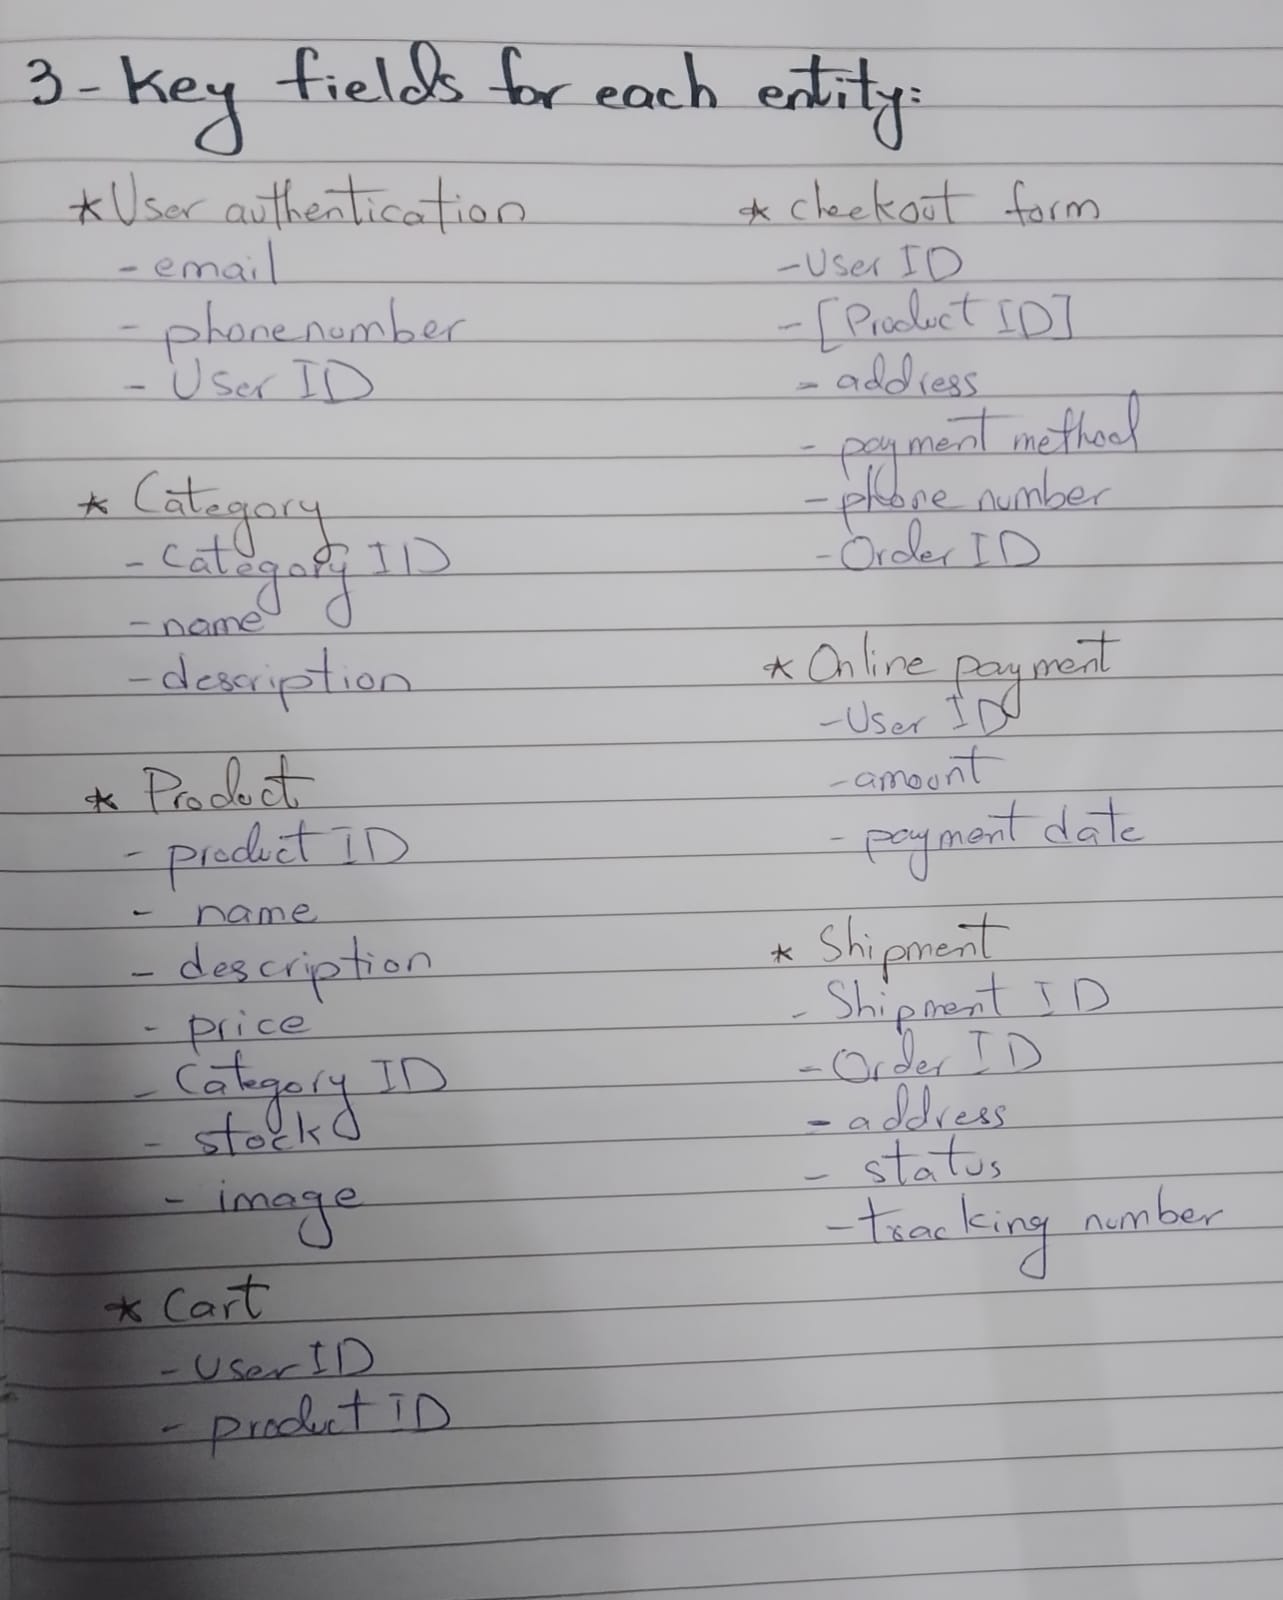 3-Key fields for each entity:
* User authentication
- email
- phonenumber
- User ID
* Category
- Category ID
- name
- description
* Product
- product ID
- name
- description
- price
- Category ID
- stock
- image
* Cart
- User ID
- product ID
* checkout form
- User ID
- [Product ID]
- address
- payment method
- phone number
- Order ID
* Online payment
- User ID
- amount
- payment date
* Shipment
- Shipment ID
- Order ID
- address
- status
- tracking number